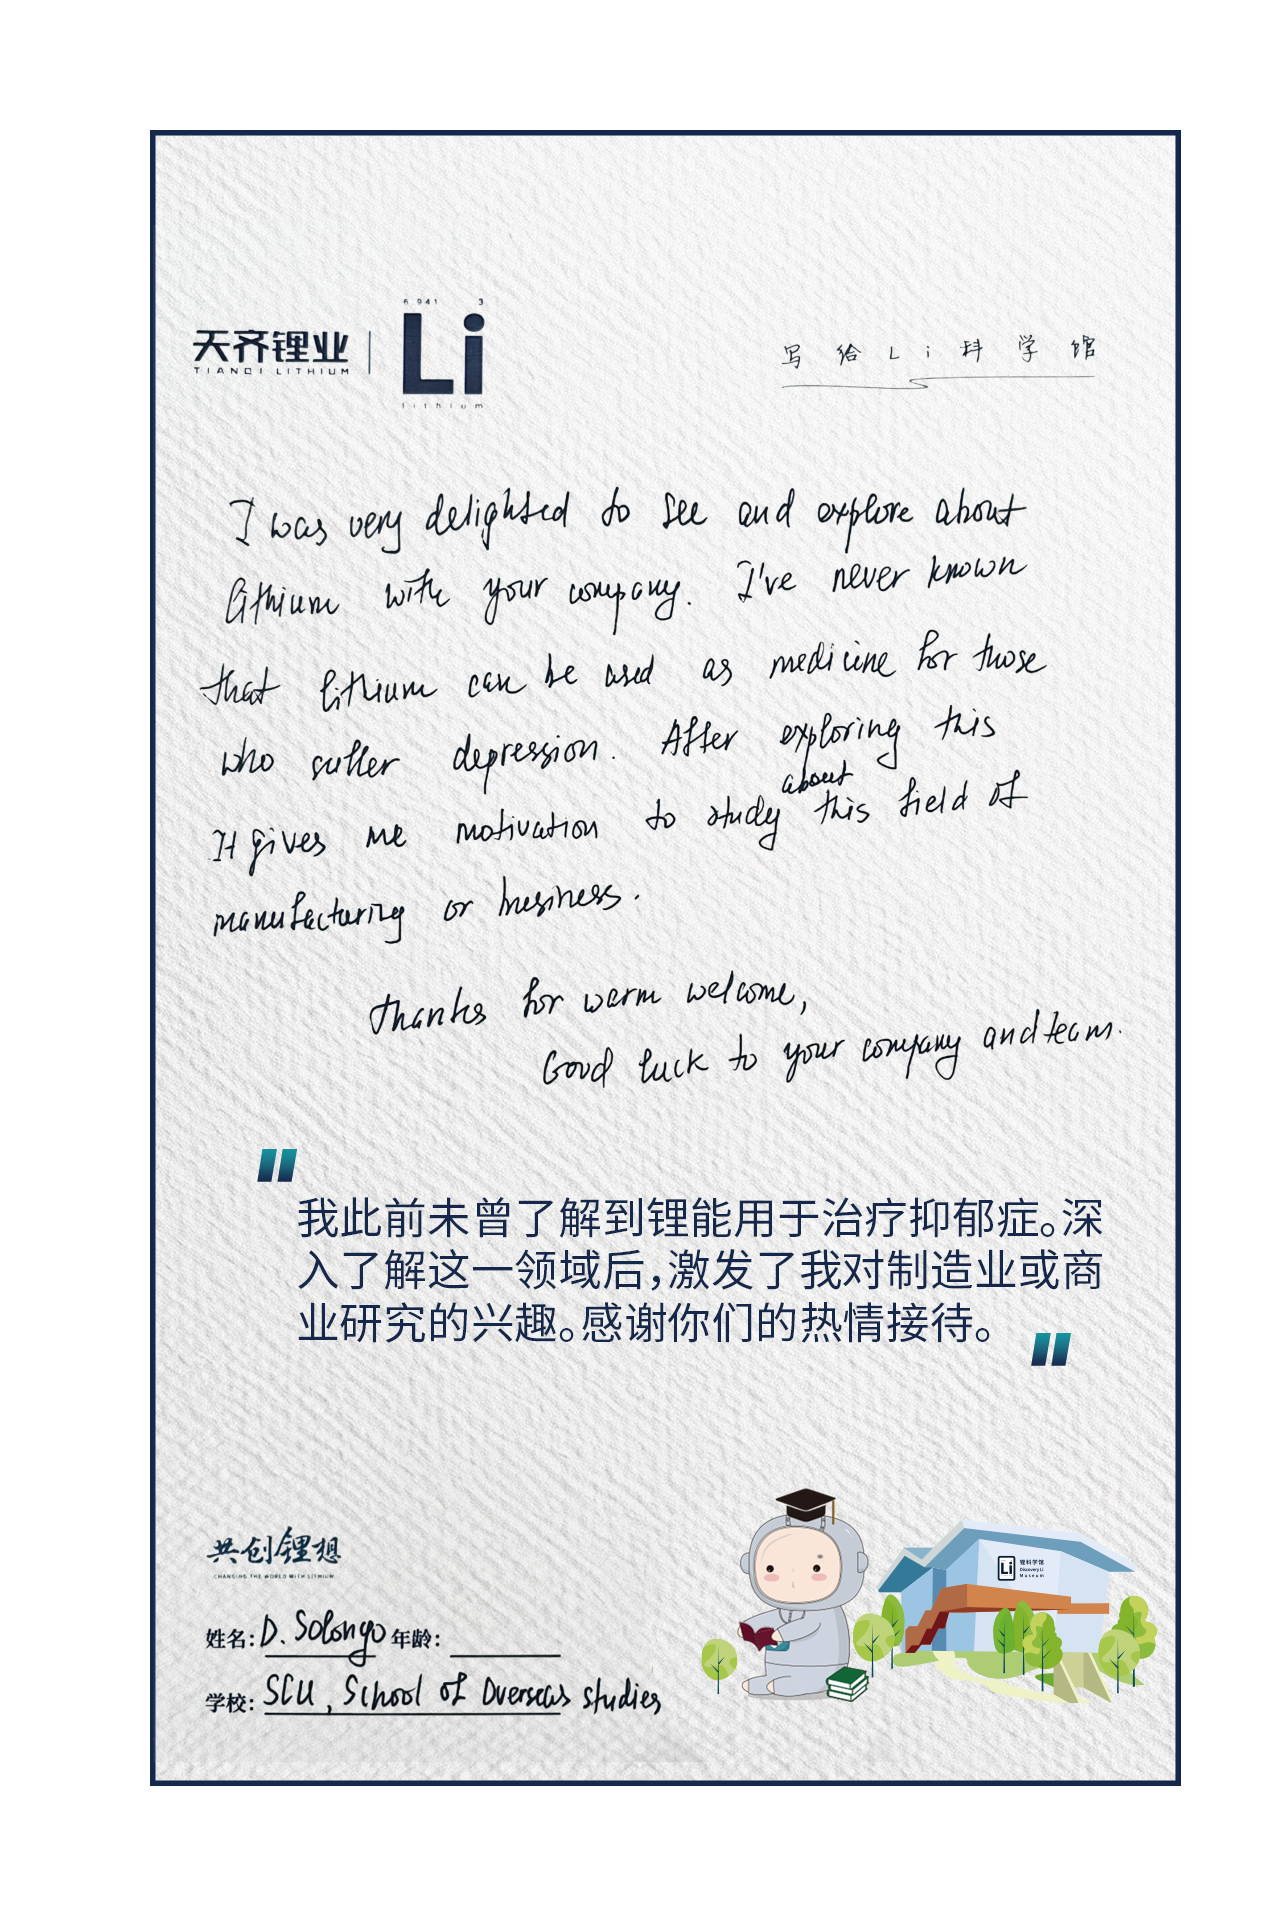 6.941 3
天齐锂业
TIANQI LITHIUM
Li
lithium
写给Li科学馆
I was very delighted to see and explore about
lithium with your company. I've never known
that lithium can be used as medicine for those
who suffer depression. After exploring this
about
It gives me motivation to study this field of
manufacturing or business.
Thanks for warm welcome,
Good luck to your company and team.
我此前未曾了解到锂能用于治疗抑郁症。深
入了解这一领域后,激发了我对制造业或商
业研究的兴趣。感谢你们的热情接待。
共创锂想
CHANGING THE WORLD WITH LITHIUM
Li 锂科学馆
Discovery Li
Museum
姓名: D. Solongo 年龄:
学校: SCU, School of Overseas studies